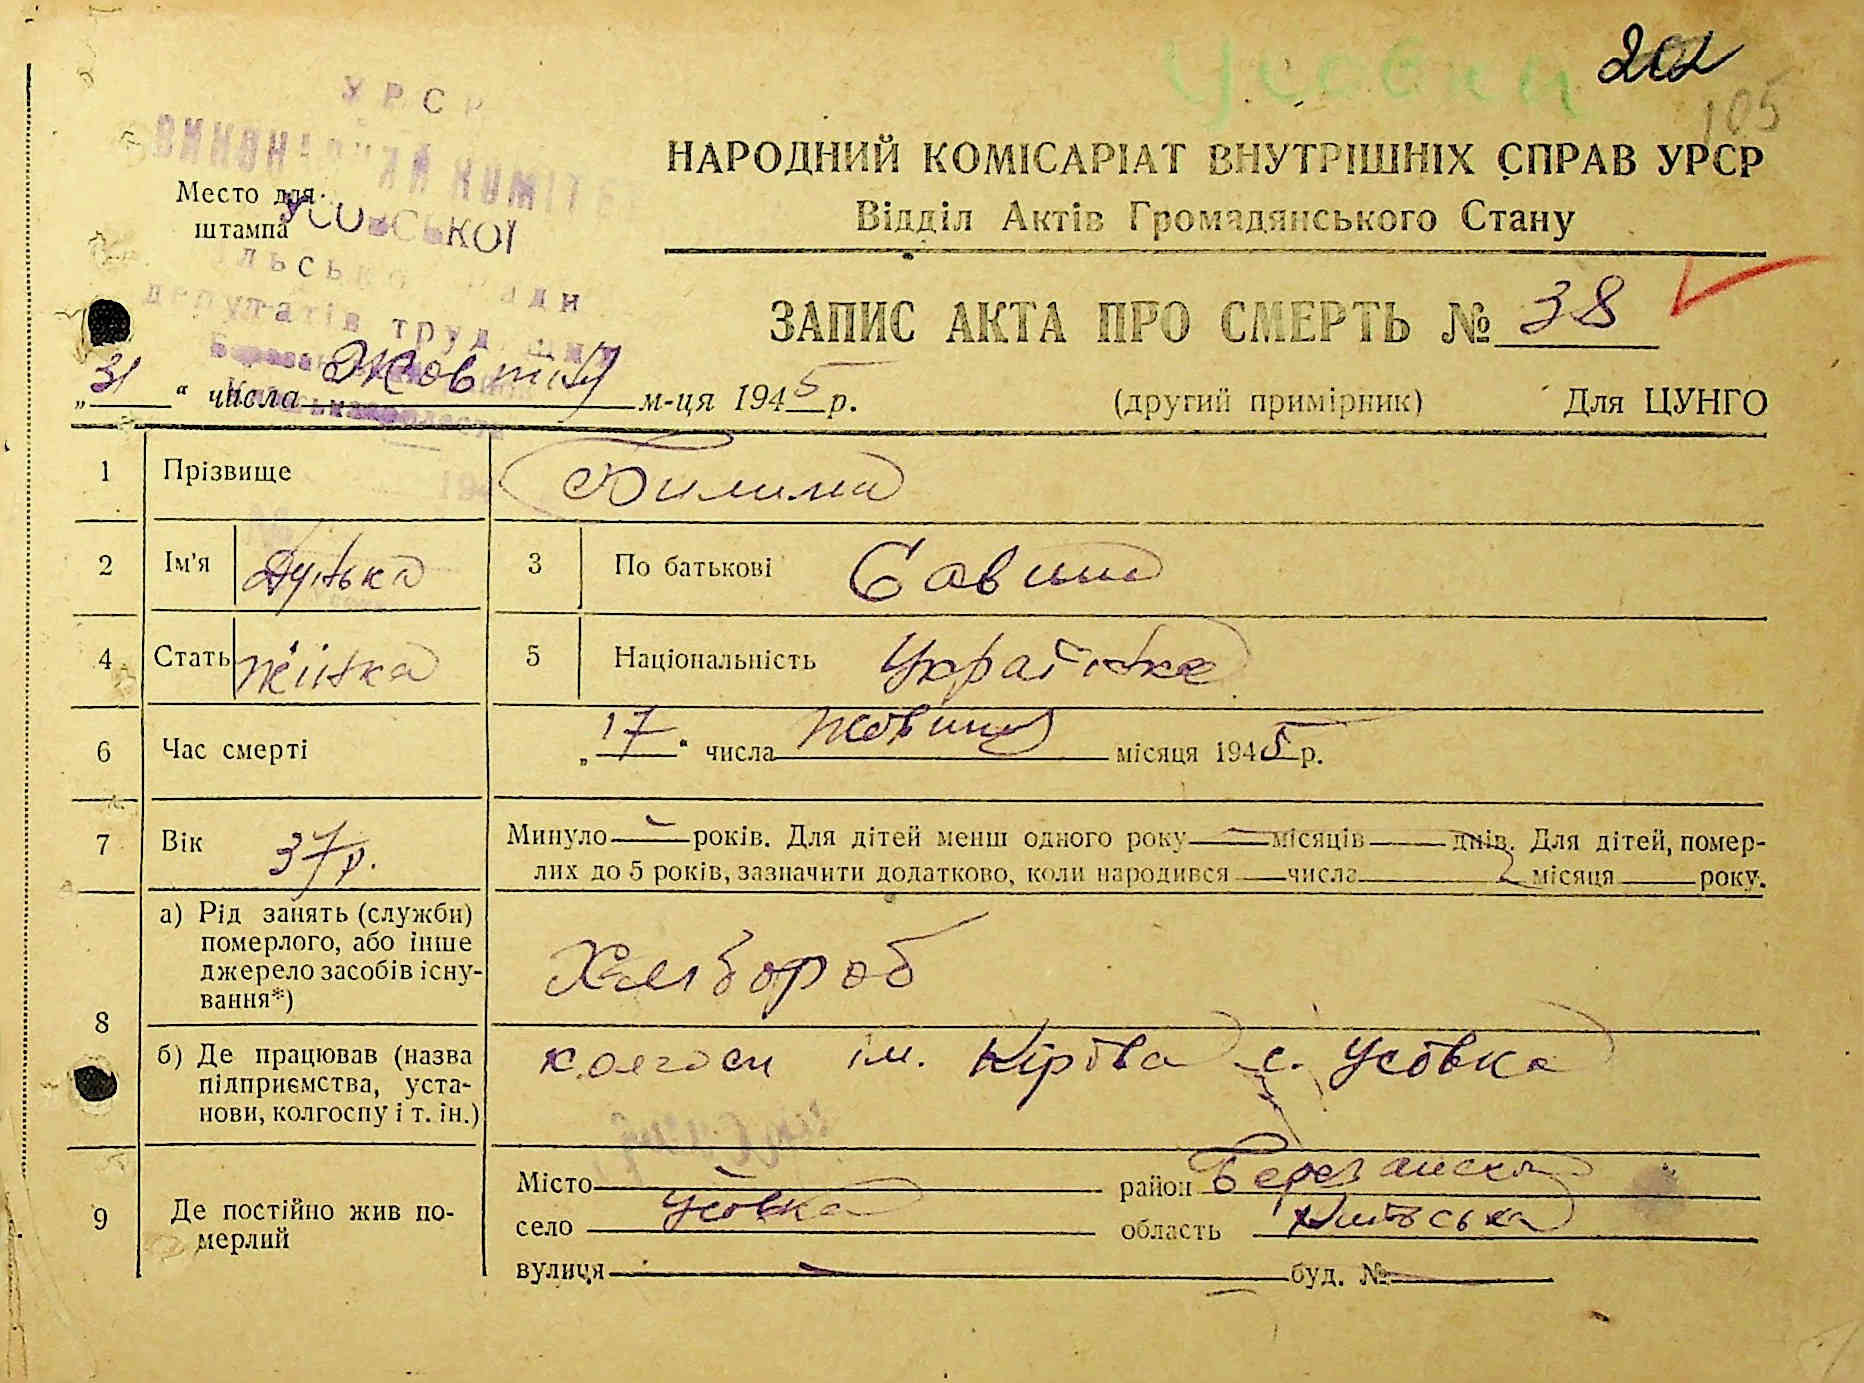 Усовка
202
105
УРСР
ВИКОНАВЧИЙ КОМІТЕТ
УСОВСЬКОЇ
сільської ради
депутатів трудящих
Место для
штампа
НАРОДНИЙ КОМІСАРІАТ ВНУТРІШНІХ СПРАВ УРСР
Відділ Актів Громадянського Стану
ЗАПИС АКТА ПРО СМЕРТЬ № 38
„31“ числа Жовтня м-ця 1945 р. (другий примірник) Для ЦУНГО
1 Прізвище Билима
2 Ім'я Дунька 3 По батькові Савіш
4 Стать жінка 5 Національність Українка
6 Час смерті „17“ числа Жовтня місяця 1945 р.
7 Вік 37 р. Минуло — років. Для дітей менш одного року — місяців — днів. Для дітей, помер-
лих до 5 років, зазначити додатково, коли народився — числа — місяця — року.
8 а) Рід занять (служби)
померлого, або інше
джерело засобів існу-
вання*)
Хлібороб
б) Де працював (назва
підприємства, уста-
нови, колгоспу і т. ін.)
колгосп ім. Кірова с. Усовка
9 Де постійно жив по-
мерлий
Місто — район Березанськ
село Усовка область Київська
вулиця — буд. № —